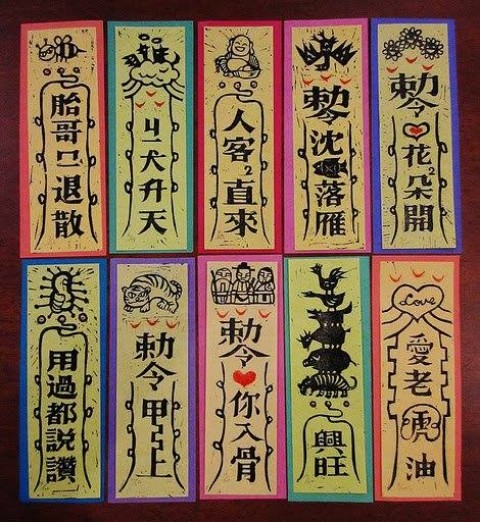 胎哥口退散
ㄐㄧ犬升天
人客2直來
勅令沈落雁
勅令花2朵開
用過都說讚
勅令甲上
勅令你入骨
興旺
Love
愛老虎油